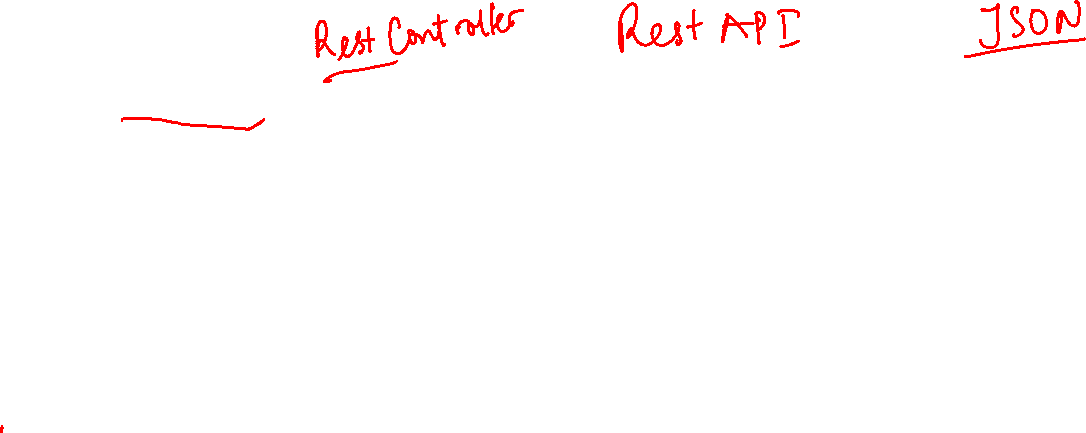 Rest Controller Rest API JSON